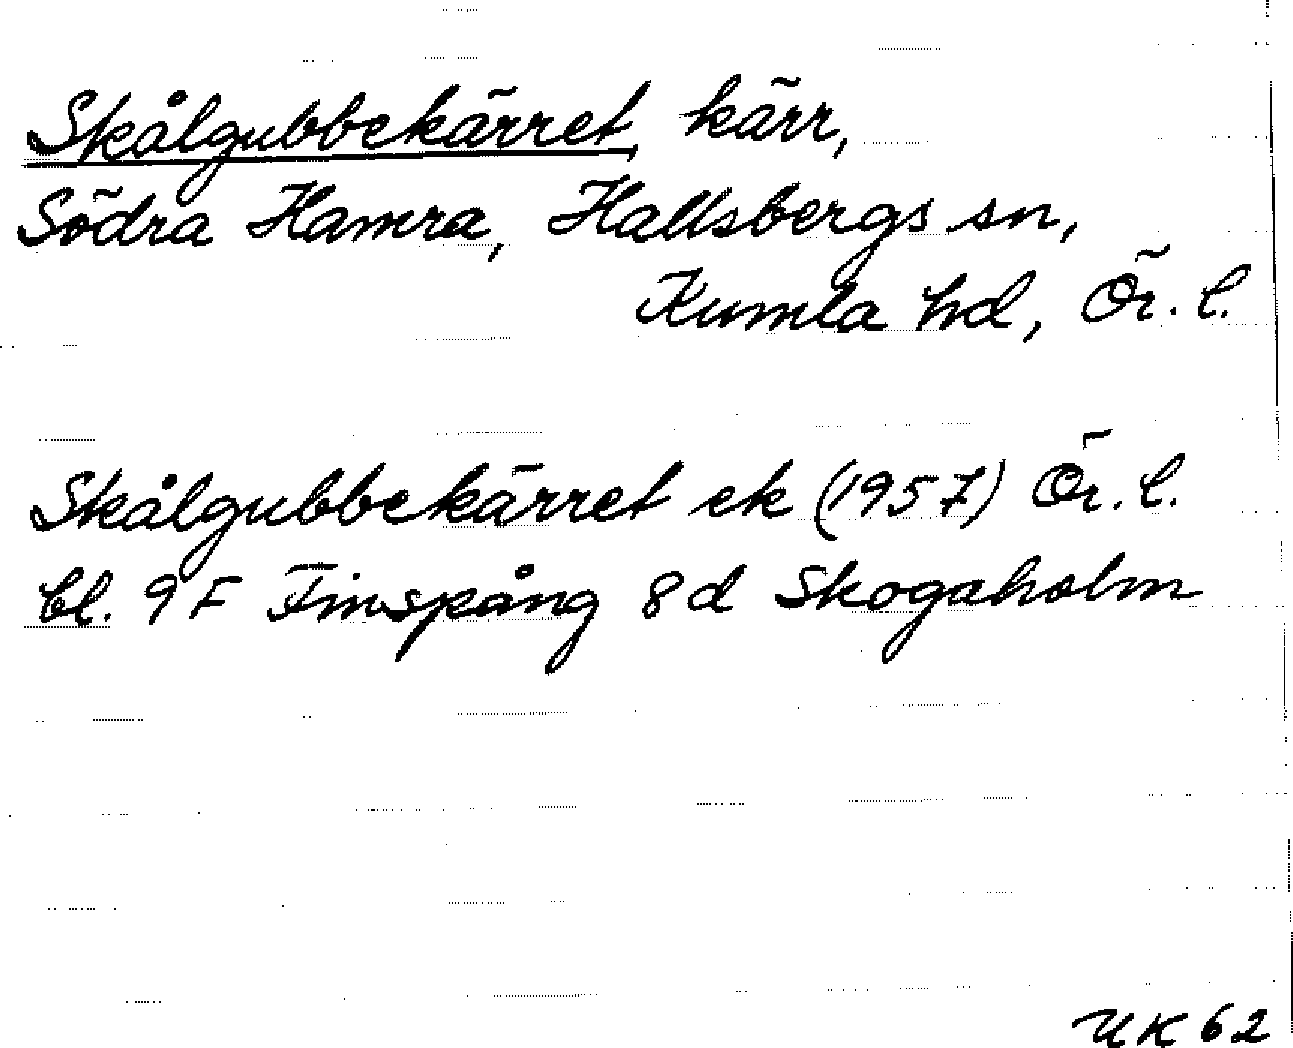 Skålgubbekärret, kärr,
Södra Hamra, Hallsbergs sn,
Kumla hd, Ör. l.
Skålgubbekärret ek (1957) Ör. l.
bl. 9F Finspång 8d Skogaholm
UK 62